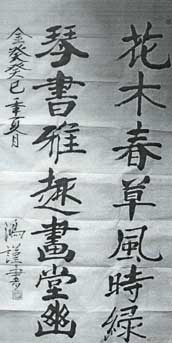 花木春草風時緑
琴書雅趣畫堂幽
癸巳年夏月
鴻謹書